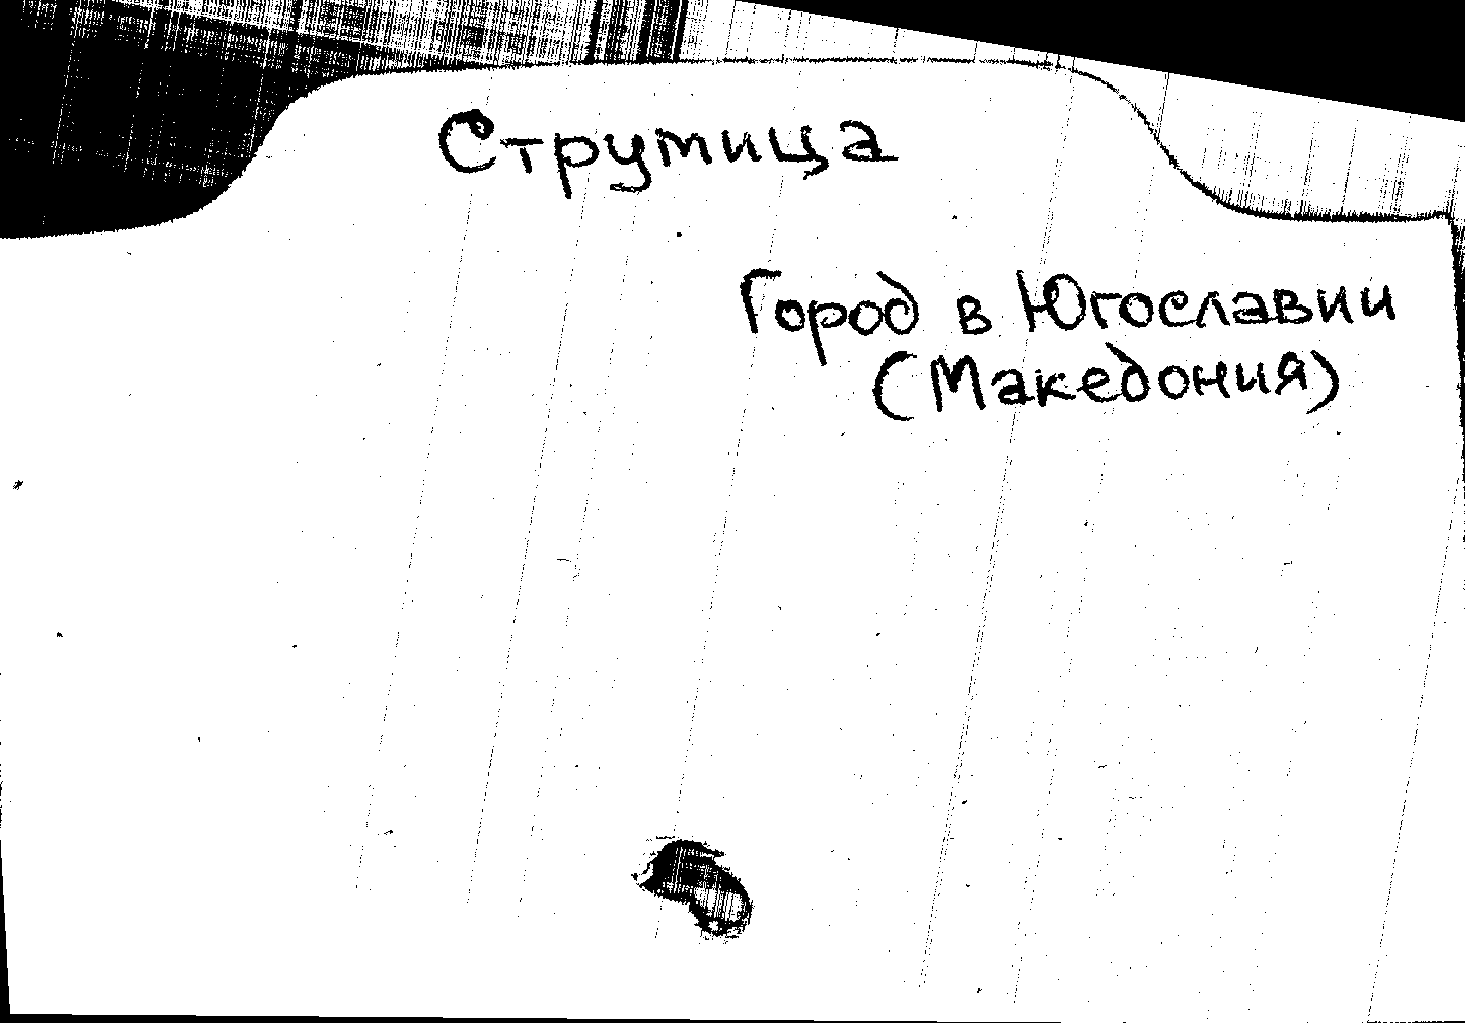 Струмица
Город в Югославии
(Македония)